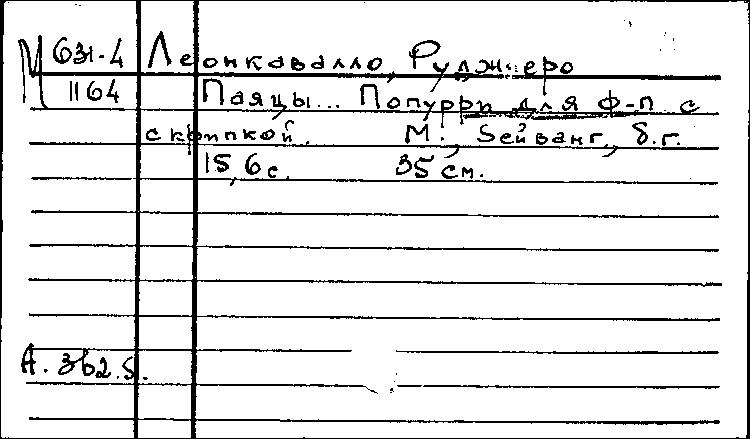 М 631-4 Леонкавалло, Руджеро
1164 Паяцы... Попурри для ф-п. с
скрипкой. М., Зейванг, б.г.
15, 6 с. 35 см.
А. 362.S.